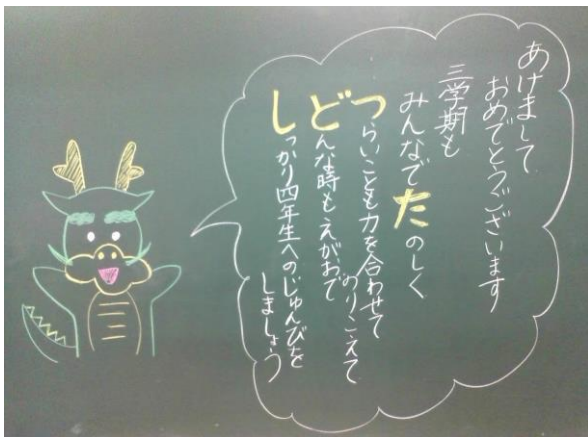 あけまして
おめでとうございます
三学期も
みんなでたのしく
つらいことも力を合わせて
のりこえて
どんな時もえがおで
しっかり四年生へのじゅんびを
しましょう